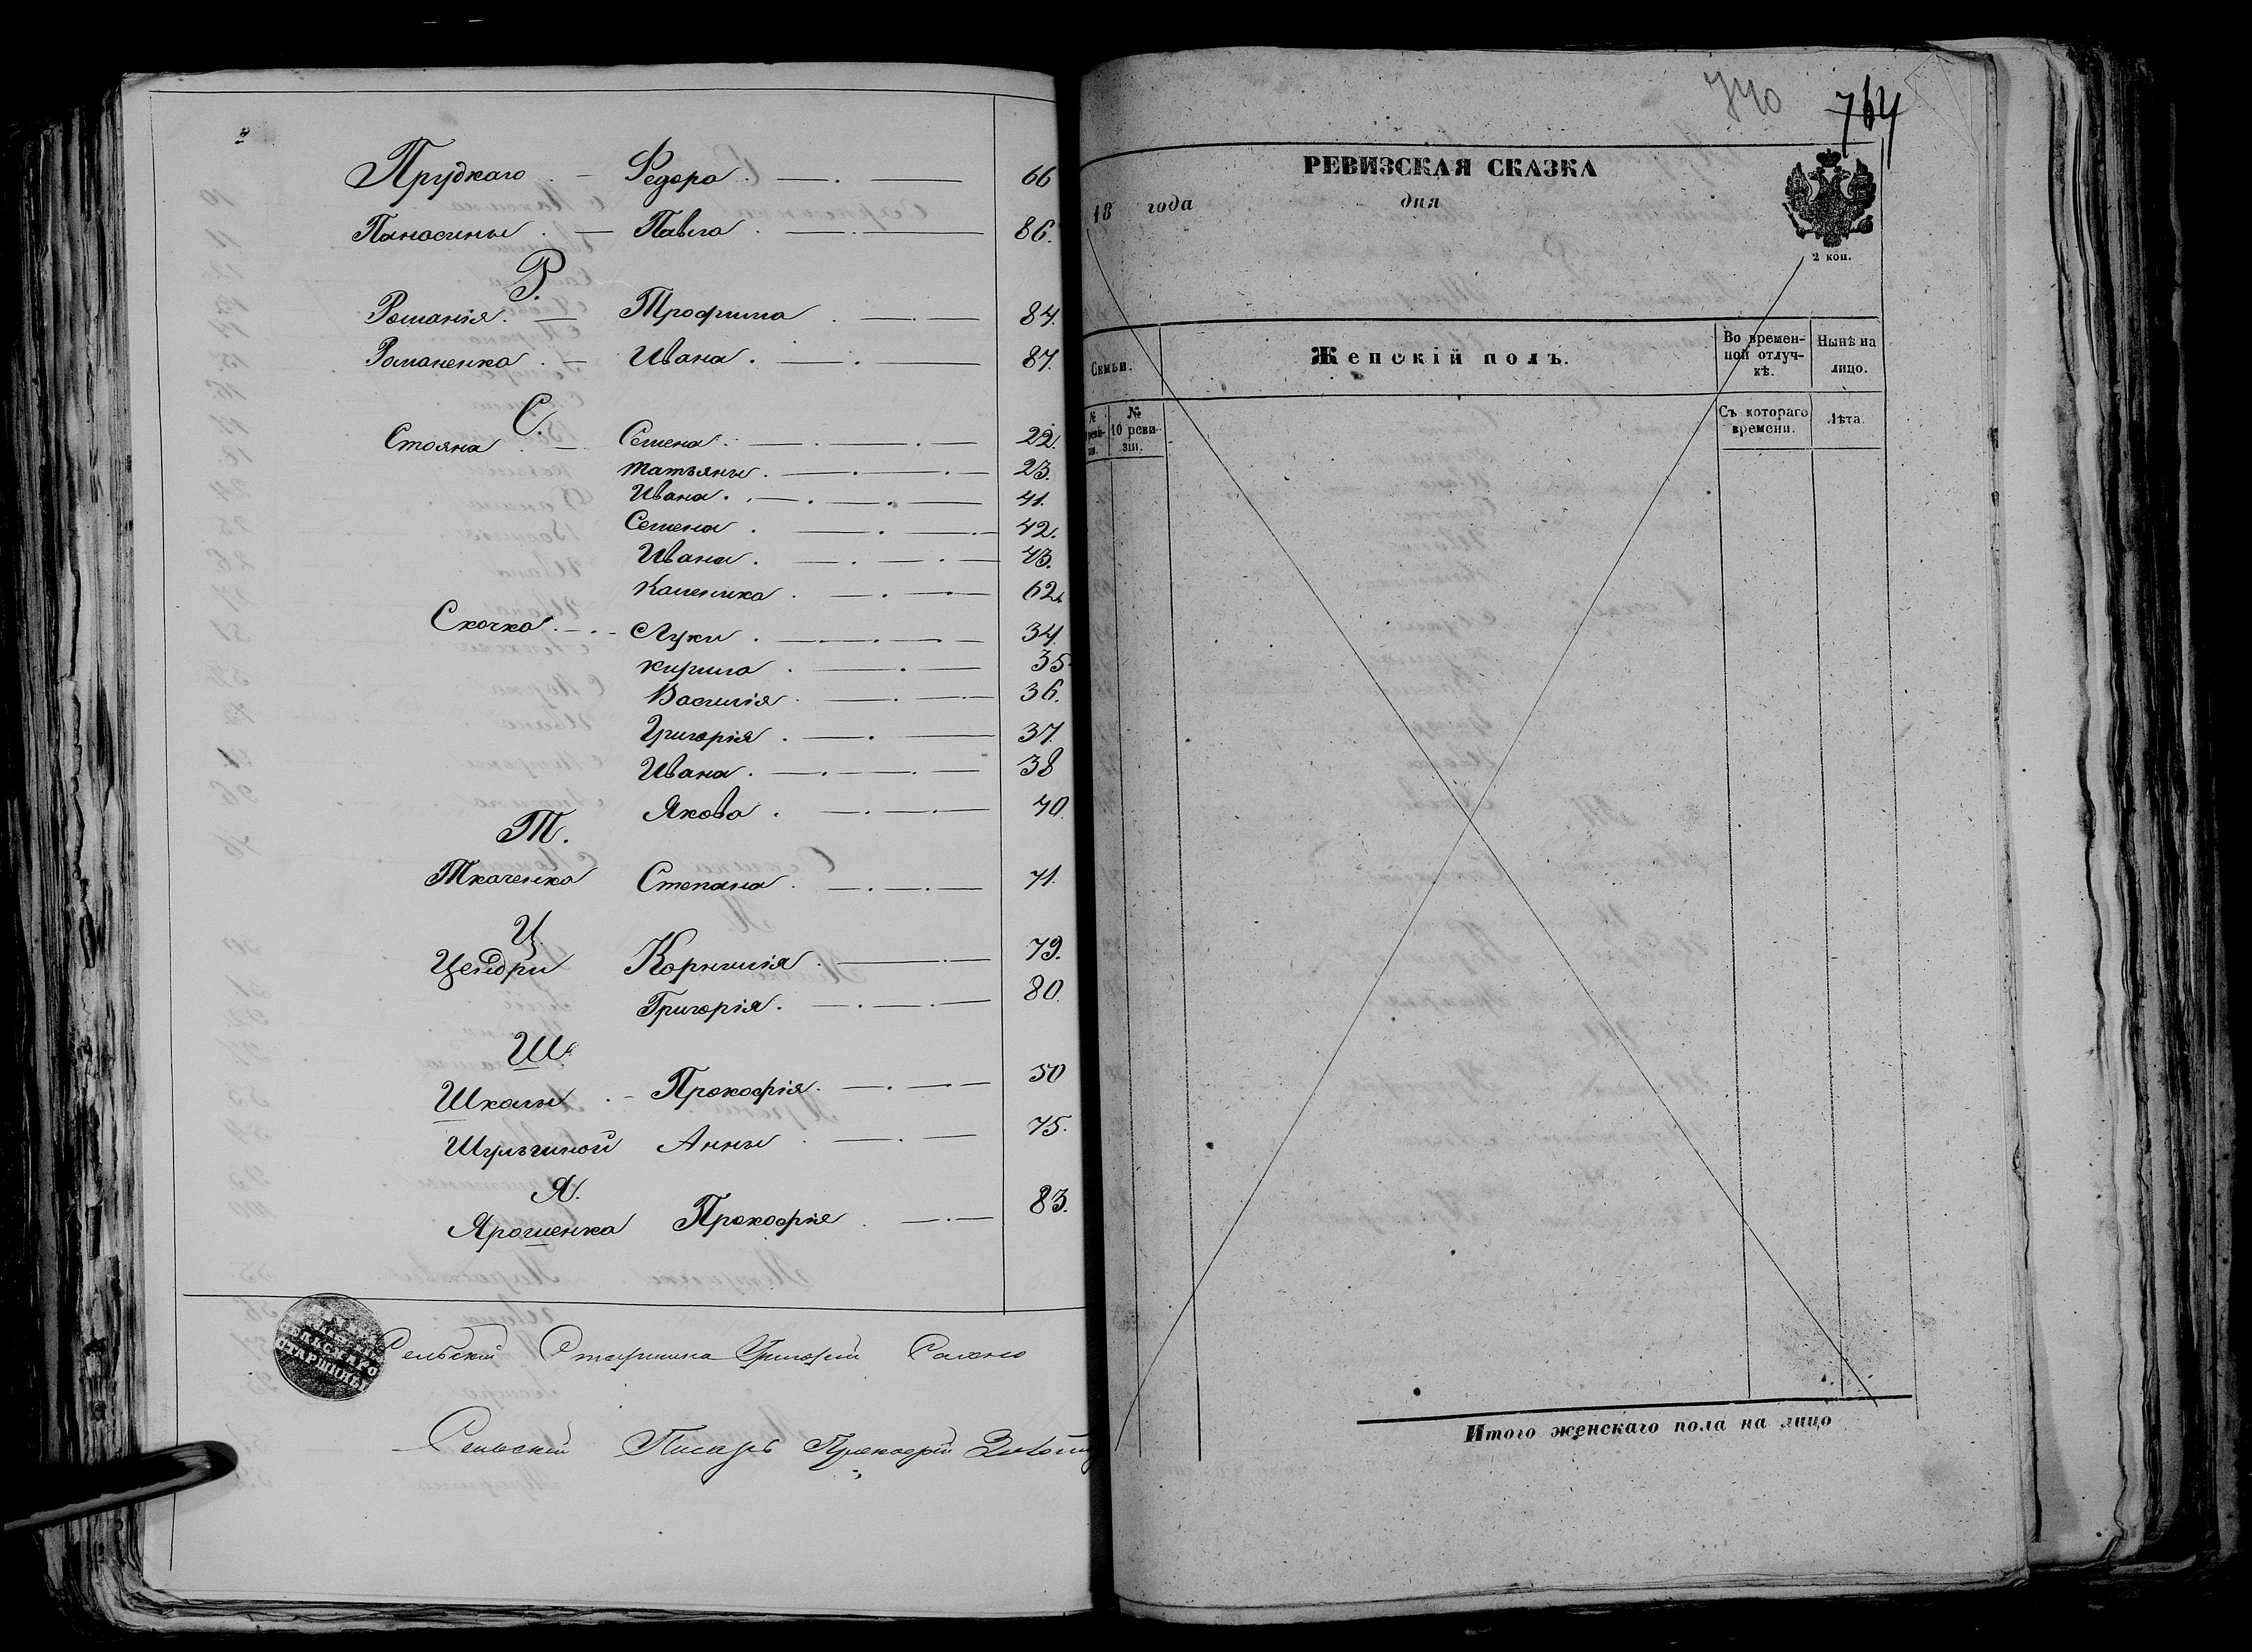 Прудкаго . — Федора . — . — 66
Панасины . — Павла . — . — 86.
Р.
Романія . — Трофима . — . — 84.
Романенка . — Ивана . — . — 87.
С.
Стояна . — Семена . — . — . — 22.
Татьяны . — . — . — 23.
Ивана . — . — . — 41.
Семена . — . — . — 42.
Ивана . — . — . — 43.
Каленика . — . — 62.
Скочка . — . — Луки . — . — . — 34.
Кирила . — . — 35.
Василія . — . — . — 36.
Григорія . — . — 37.
Ивана . — . — . — 38
Якова . — . — . — 40.
Т.
Ткаченка Степана . — . — . — 71.
Ц.
Цендри Корнилія . — . — 79.
Григорія . — . — . — 80.
Ш.
Шкалы . — Прокофія . — . — . — 50
Шульгиной Анны . — . — 75.
Я.
Ярошенка Прокофія . — . — 83.
СЕЛЬСКАГО
СТАРШИНЫ
Сельскій Старшина Григорій
Сельскій Писарь Прокофій
740 764
РЕВИЗСКАЯ СКАЗКА
18 года дня
2 коп.
Семьи.
Женскій полъ.
Во времен-
ной отлуч-
кѣ.
Нынѣ на
лицо.
№
реви-
зіи.
№
10 реви-
зіи.
Съ котораго
времени.
Лѣта.
Итого женскаго пола на лицо